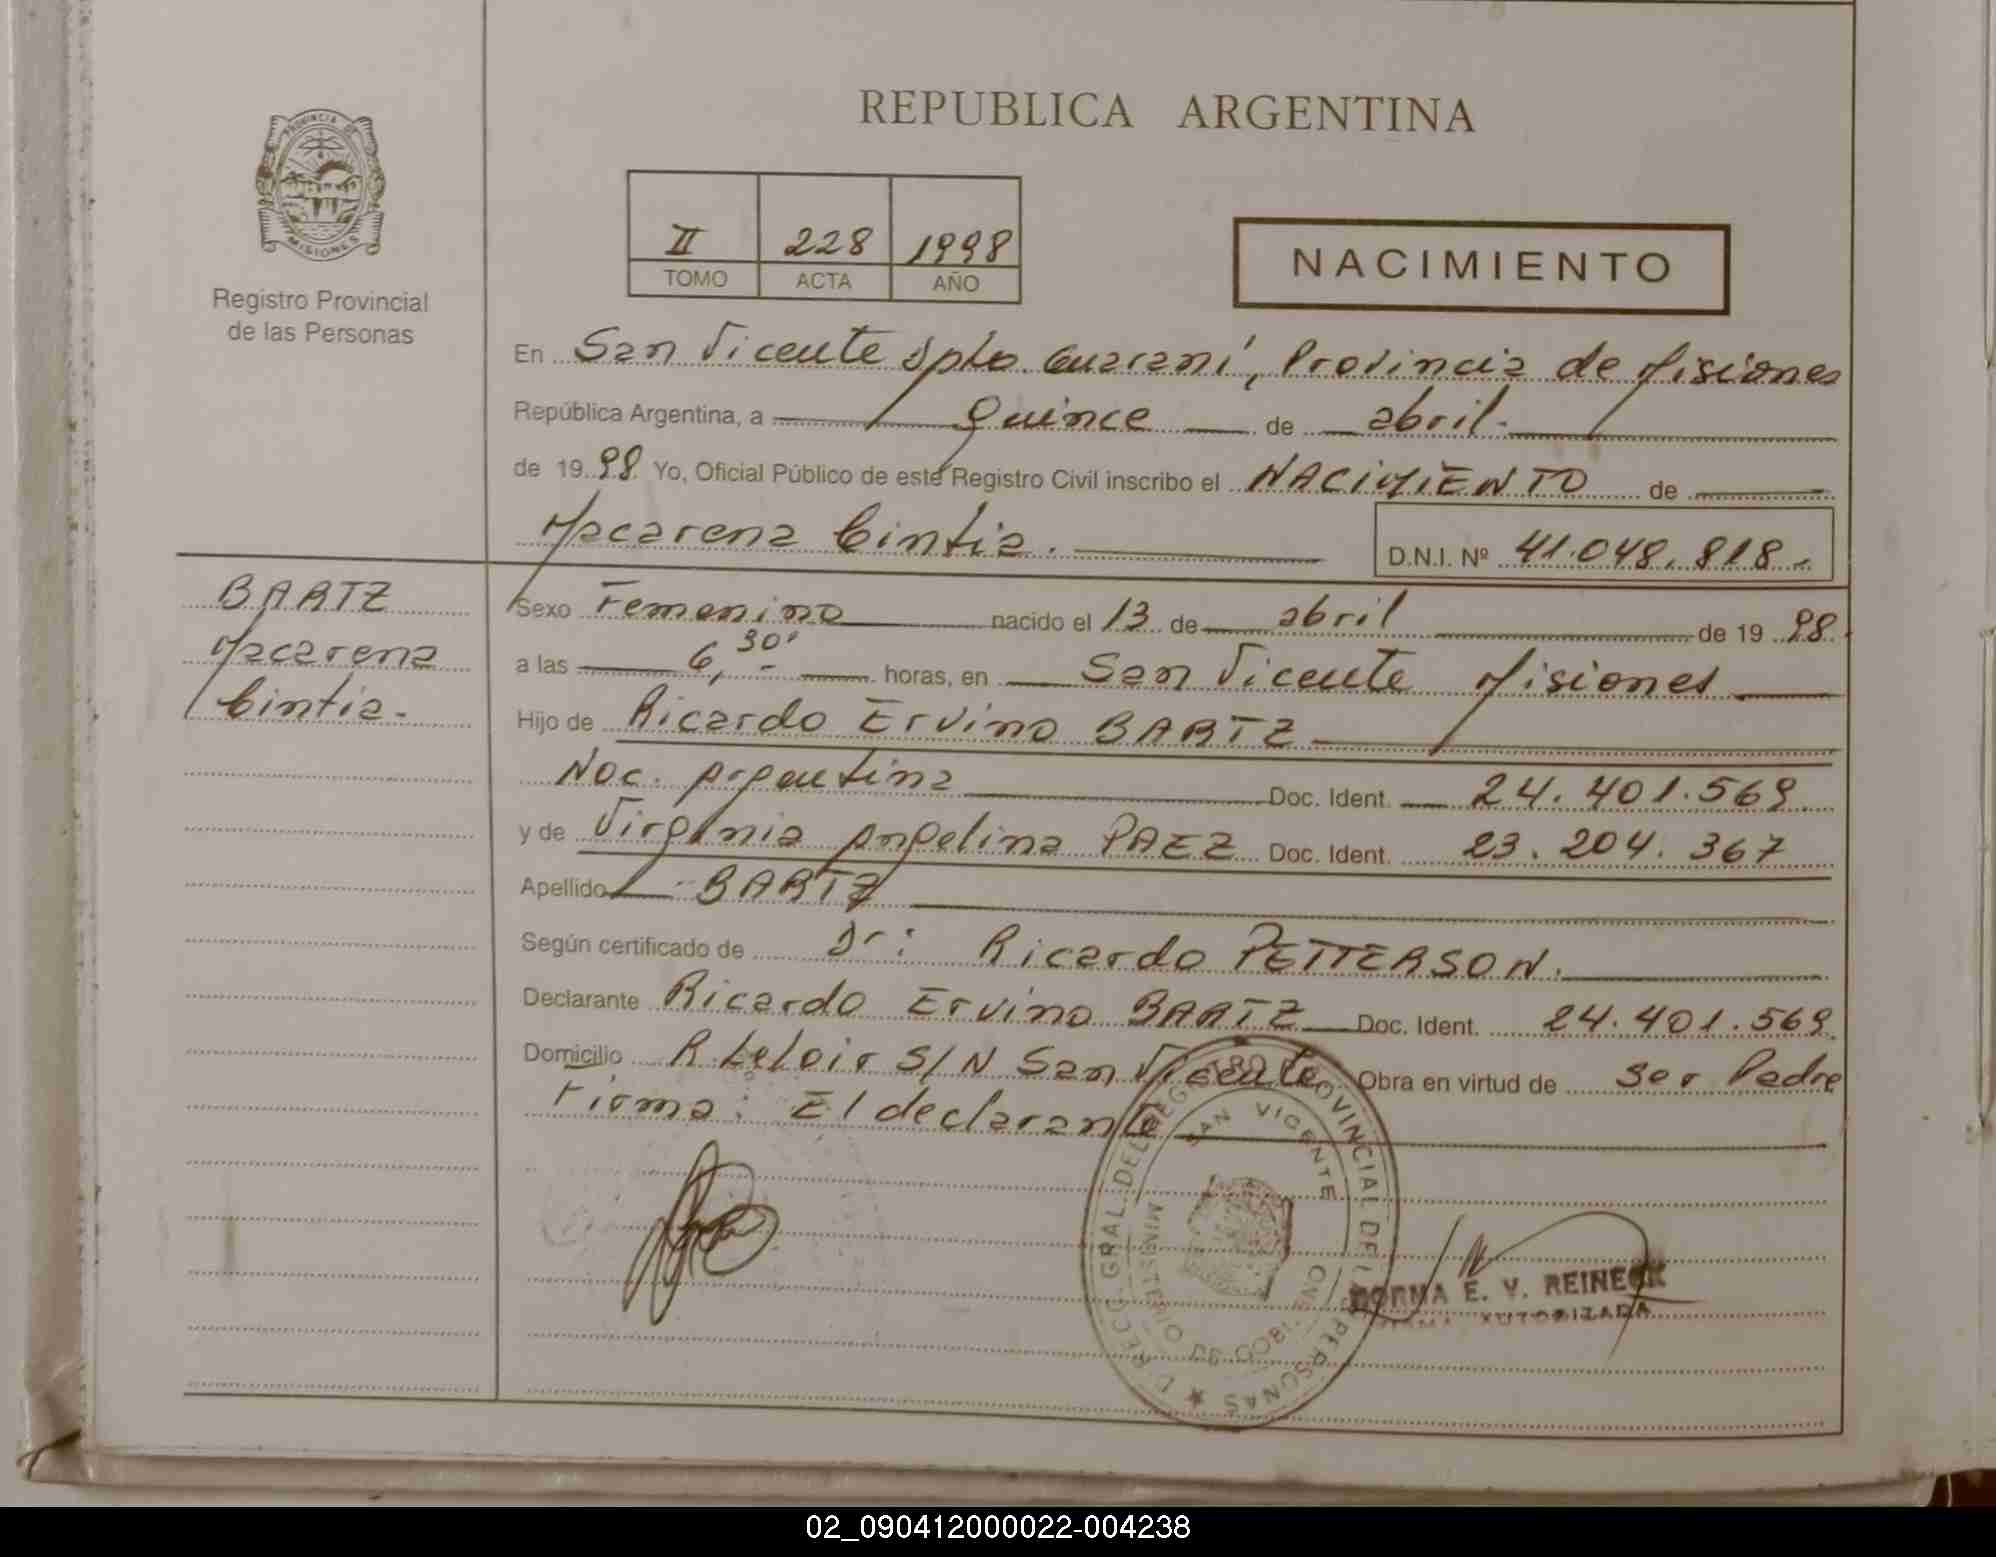 REPUBLICA ARGENTINA
PROVINCIA DE
MISIONES
Registro Provincial
de las Personas
II 228 1998
TOMO ACTA AÑO
NACIMIENTO
En San Vicente Dpto. Guaraní, Provincia de Misiones
República Argentina, a quince de abril.
de 19 98 Yo, Oficial Público de este Registro Civil inscribo el NACIMIENTO de
Macarena Cintia.
D.N.I. Nº 41.048.818.
BARTZ
Macarena
Cintia.
Sexo Femenino nacido el 13 de abril de 19 98
a las 6,30' horas, en San Vicente Misiones
Hijo de Ricardo Ervino BARTZ
Nac. Argentina Doc. Ident. 24.401.569
y de Virginia Angelina PAEZ Doc. Ident. 23.204.367
Apellido BARTZ
Según certificado de Dr: Ricardo PETTERSON.
Declarante Ricardo Ervino BARTZ Doc. Ident. 24.401.569
Domicilio R. Leloir S/N San Vicente Obra en virtud de ser Padre
Firma: El declarante
DIRECC. GRAL. DEL REGISTRO PROVINCIAL DE LAS PERSONAS
SAN VICENTE
MINISTERIO DE GOBIERNO
NORMA E. V. REINECK
FIRMA AUTORIZADA
02_090412000022-004238